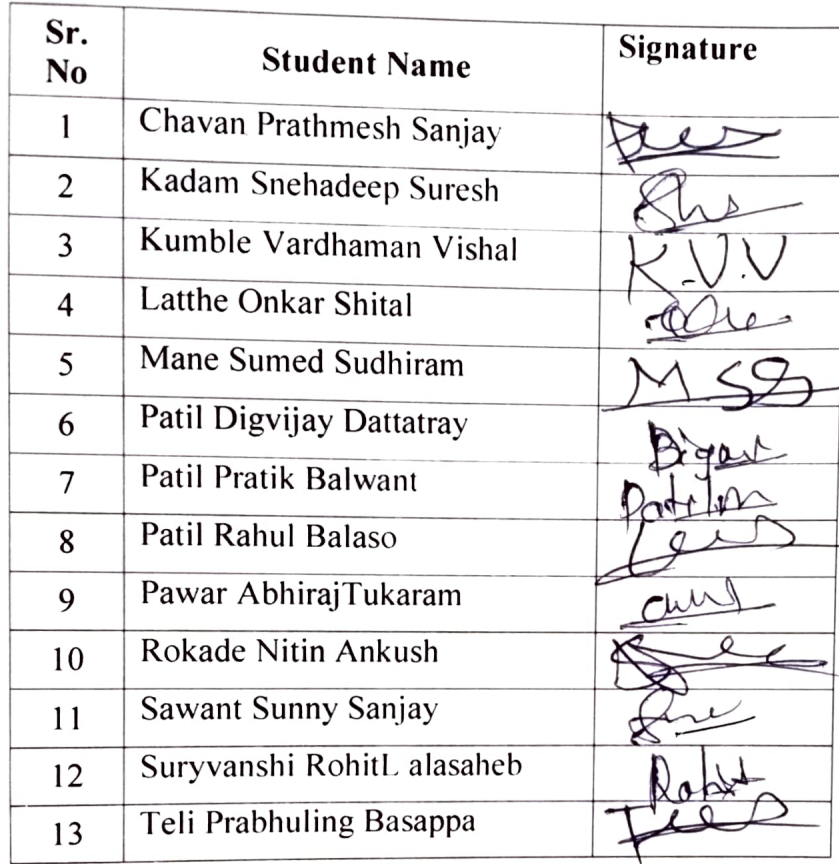 Sr. No Student Name Signature
1 Chavan Prathmesh Sanjay
2 Kadam Snehadeep Suresh
3 Kumble Vardhaman Vishal K.V.V
4 Latthe Onkar Shital
5 Mane Sumed Sudhiram M.SS
6 Patil Digvijay Dattatray
7 Patil Pratik Balwant
8 Patil Rahul Balaso
9 Pawar AbhirajTukaram
10 Rokade Nitin Ankush
11 Sawant Sunny Sanjay
12 Suryvanshi RohitL alasaheb Rohit
13 Teli Prabhuling Basappa